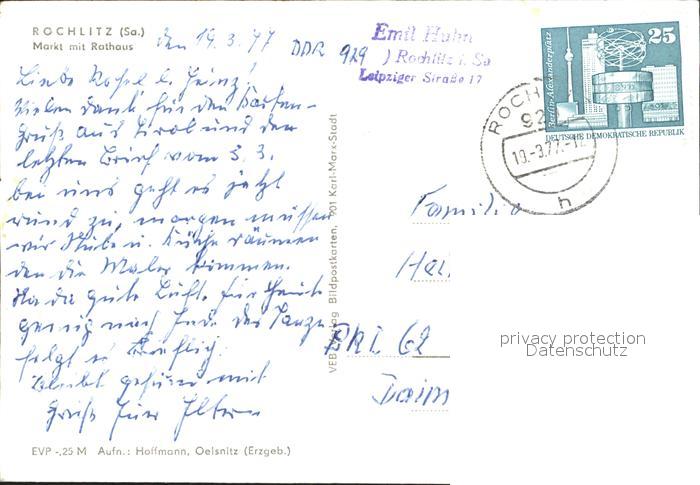 ROCHLITZ (Sa.)
Markt mit Rathaus
den 19.3.77
DDR 929
Emil Huhn
) Rochlitz i. Sa
Leipziger Straße 17
25
Berlin-Alexanderplatz
DEUTSCHE DEMOKRATISCHE REPUBLIK
ROCH
92
19.-3.77.-12
h
Liebe Rosel u. Heinz!
Vielen Dank für den Karten-
Gruß aus Tirol und den
letzten Brief vom 3.3.
bei uns geht es jetzt
rund zu, morgen müssen
wir Stube u. Küche räumen
den die Maler kommen.
Na da gute Luft. für heute
genug nach Ende des Tanzes
folgt
Bleibt gesund mit
Gruß Eure Eltern
VEB Verlag Bildpostkarten, 901 Karl-Marx-Stadt
Familie
Hei
BRD 62
privacy protection
Datenschutz
EVP -,25 M Aufn.: Hoffmann, Oelsnitz (Erzgeb.)